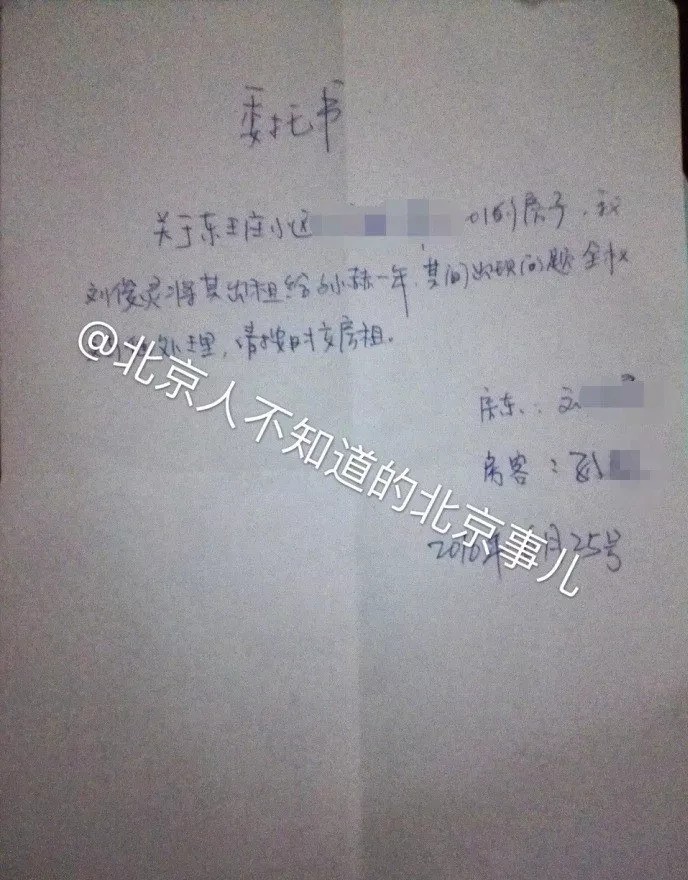 委托书
关于东王庄小区 01的房子，我
刘俊灵将其出租给小赫一年，其间出现问题全权
处理，请按时交房租。
房东：刘
房客：孙
2016年 月25号
@北京人不知道的北京事儿